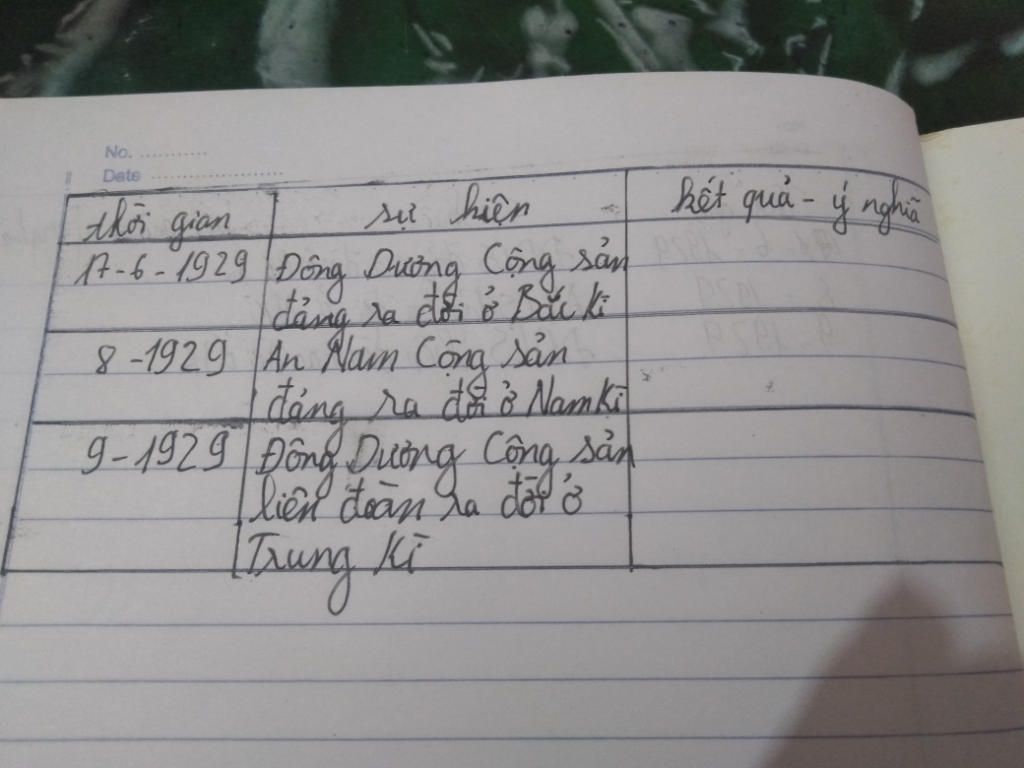 No. ...........
Date ........................
thời gian sự hiện kết quả - ý nghĩa
17-6-1929 Đông Dương Cộng sản
đảng ra đời ở Bắc kì
8-1929 An Nam Cộng sản
đảng ra đời ở Nam Kì
9-1929 Đông Dương Cộng sản
liên đoàn ra đời ở
Trung Kì